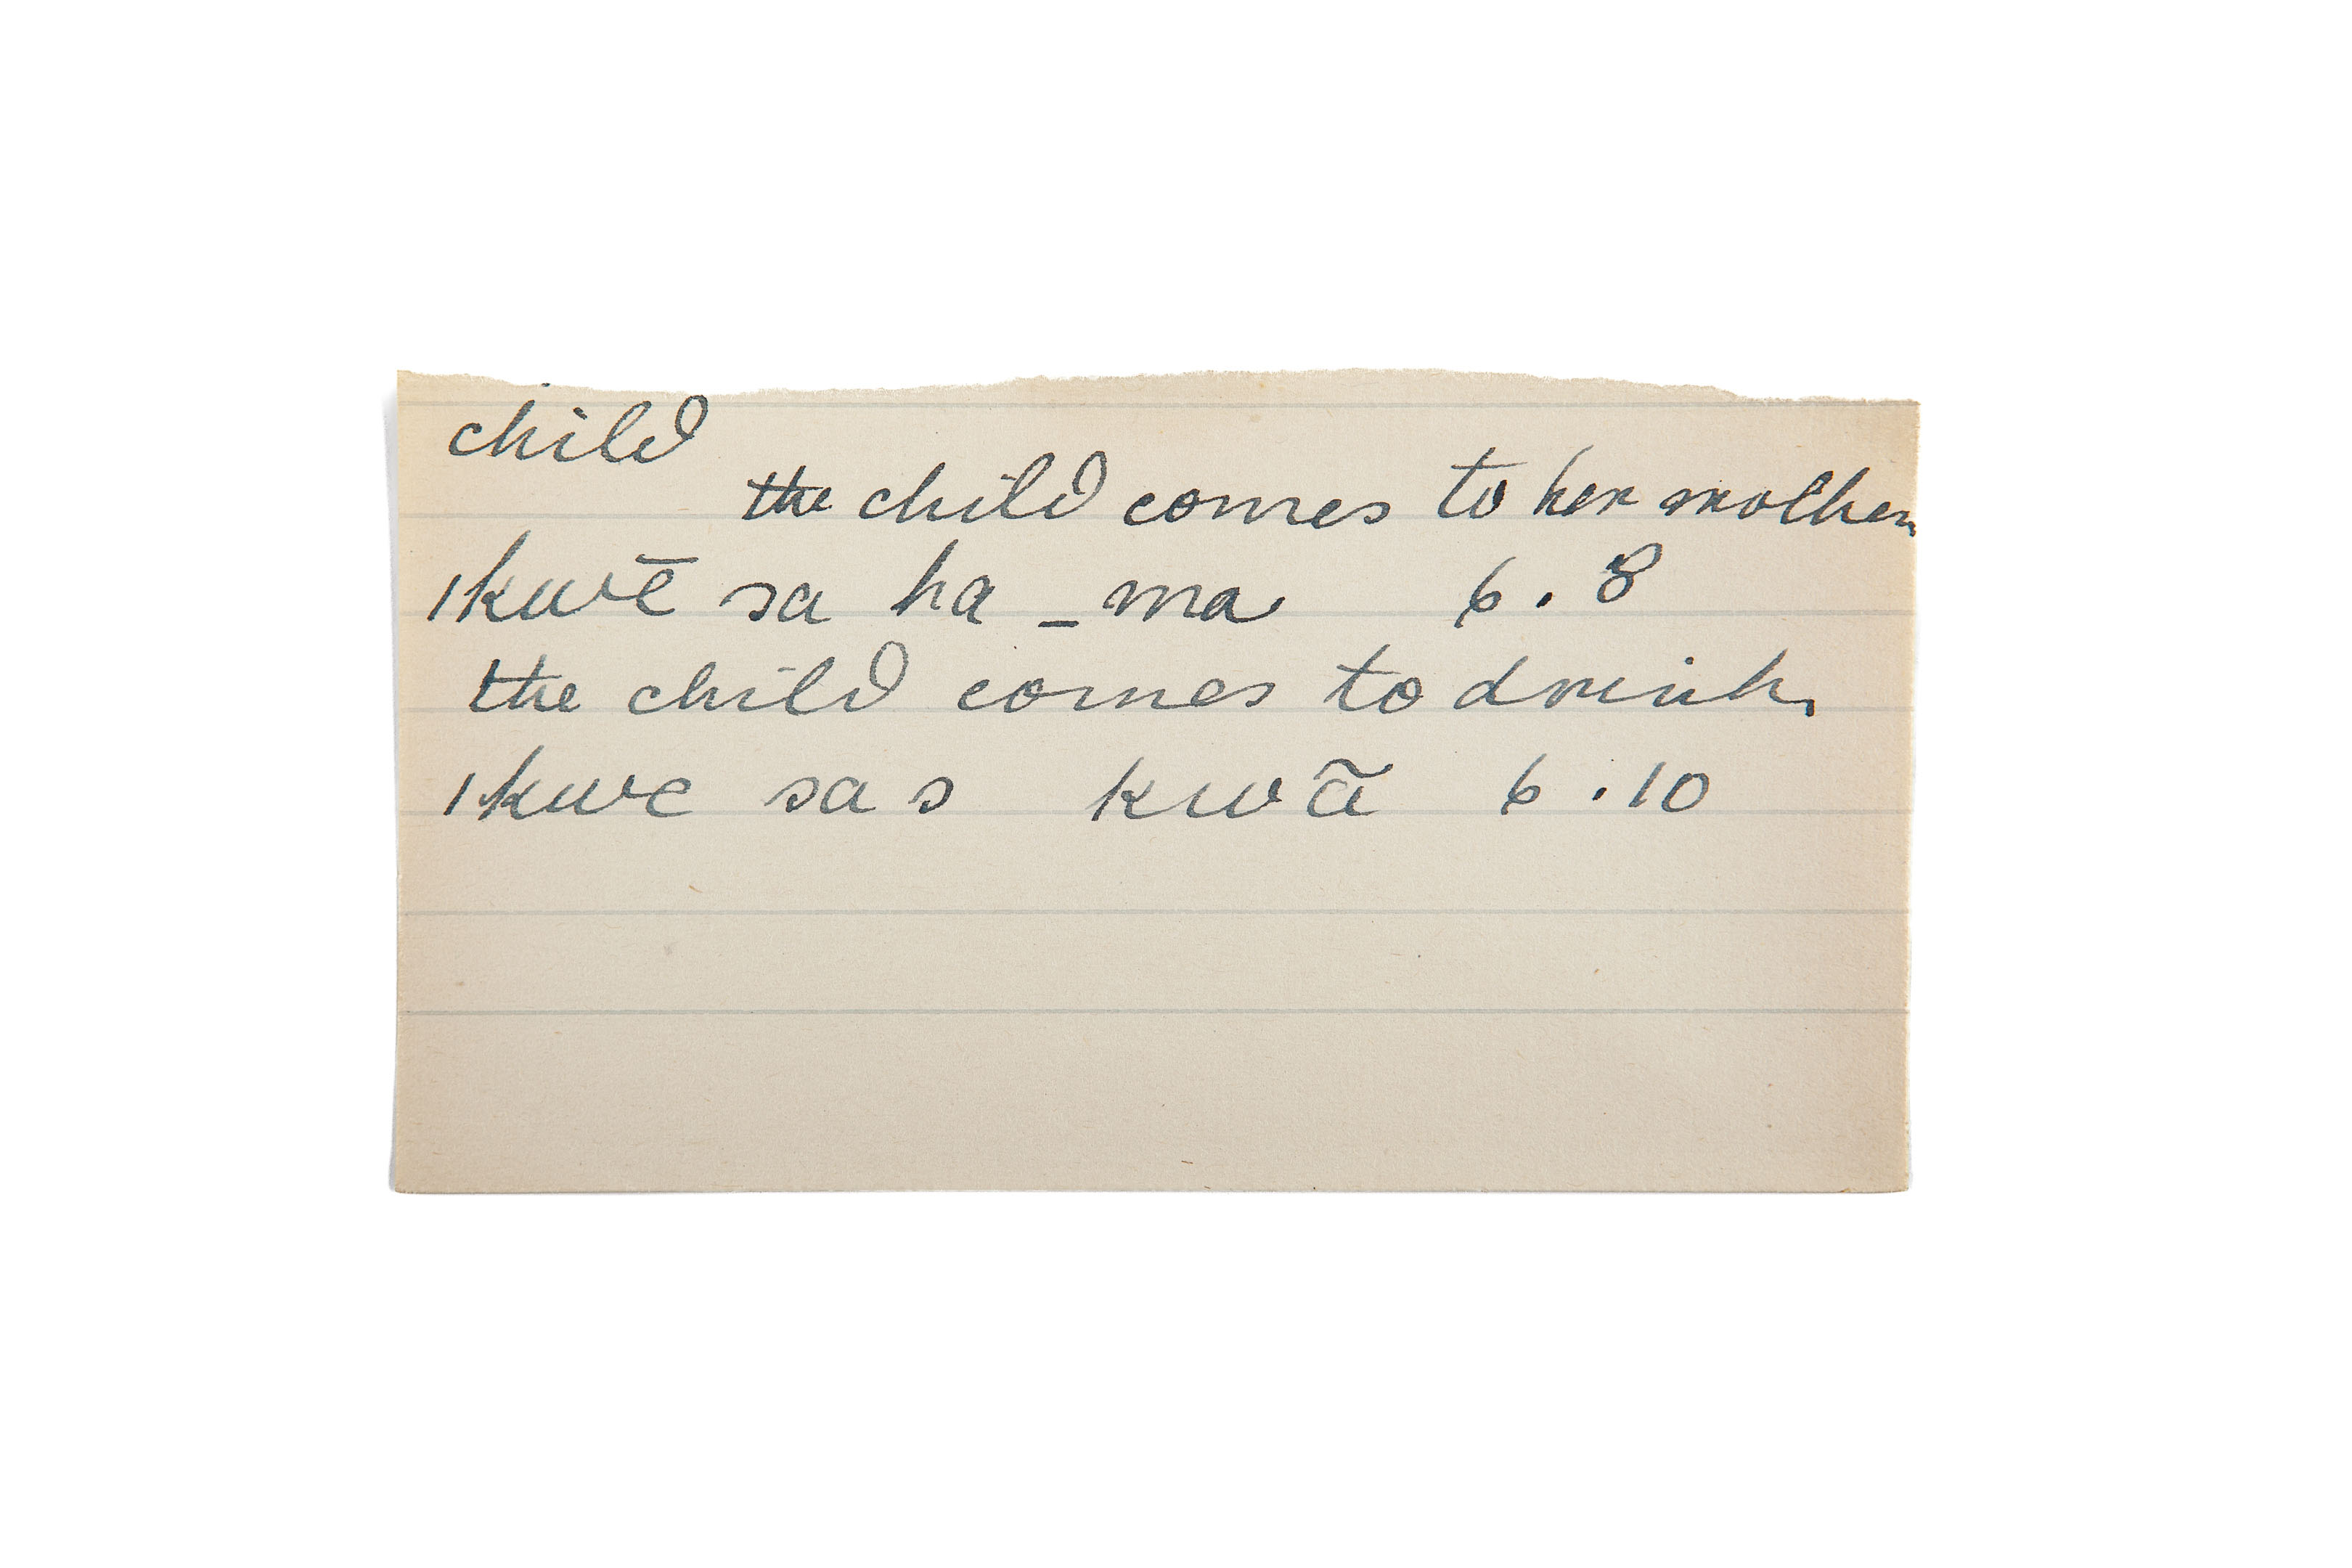 child
the child comes to her mother
ǀkwē sa ha _ma 6.8
the child comes to drink
ǀkwe sa s kwã 6.10